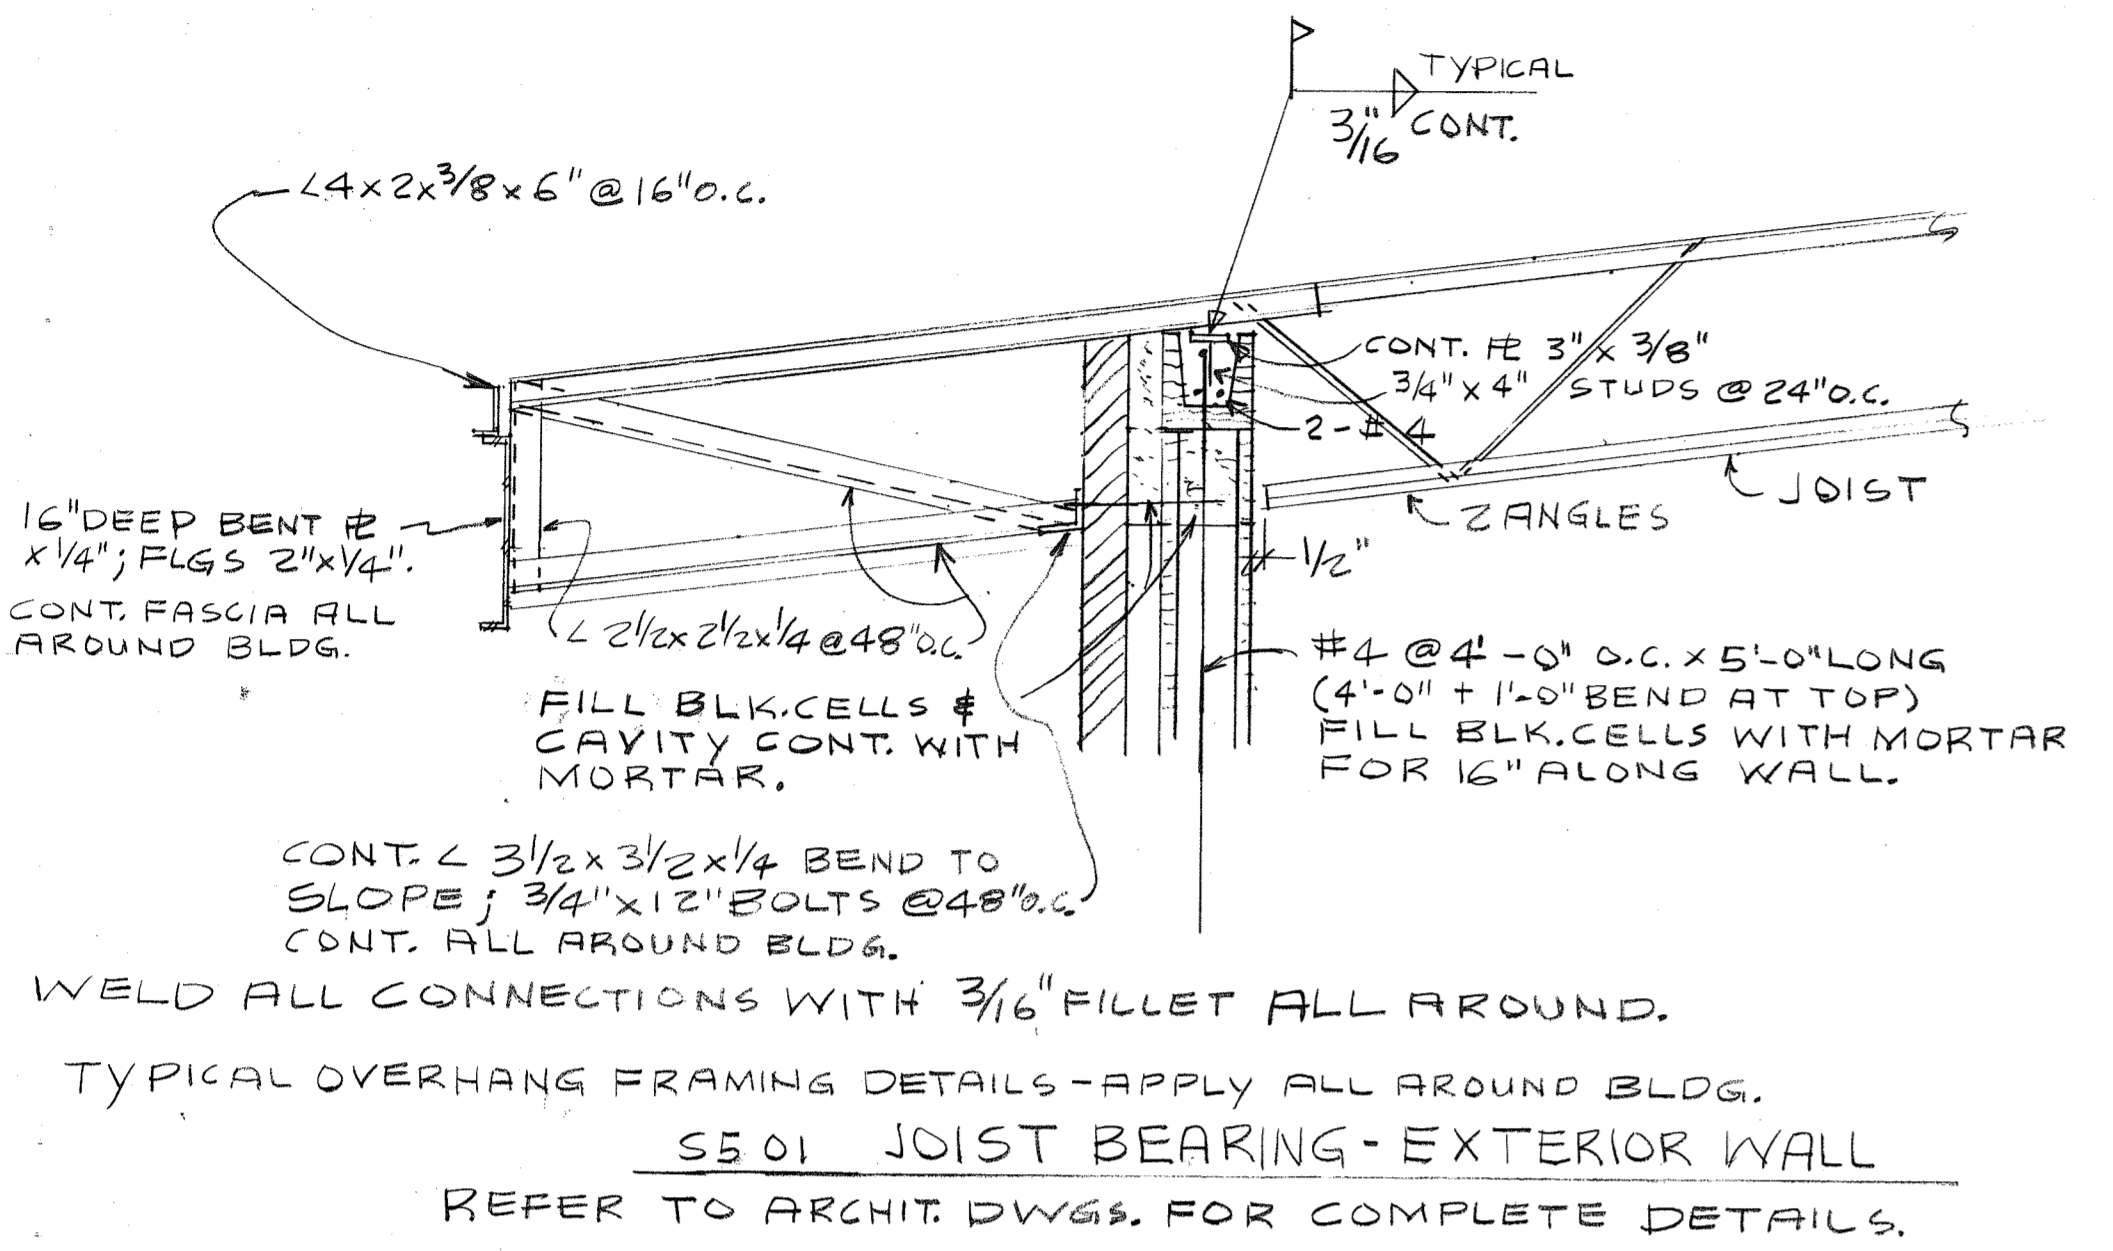 TYPICAL
3/16" CONT.
∠4x2x3/8x6"@16"O.C.
CONT. ℄ 3"x3/8"
3/4"x4" STUDS @ 24"O.C.
2-#4
JOIST
2 ANGLES
1/2"
16"DEEP BENT ℄
x1/4"; FLGS 2"x1/4".
CONT. FASCIA ALL
AROUND BLDG.
∠ 2 1/2x2 1/2x1/4@48"O.C.
FILL BLK.CELLS &
CAVITY CONT. WITH
MORTAR.
#4 @ 4'-0" O.C. x 5'-0"LONG
(4'-0" + 1'-0"BEND AT TOP)
FILL BLK.CELLS WITH MORTAR
FOR 16"ALONG WALL.
CONT. ∠ 3 1/2x3 1/2x1/4 BEND TO
SLOPE; 3/4"x12"BOLTS @48"O.C.
CONT. ALL AROUND BLDG.
WELD ALL CONNECTIONS WITH 3/16"FILLET ALL AROUND.
TYPICAL OVERHANG FRAMING DETAILS-APPLY ALL AROUND BLDG.
S501 JOIST BEARING-EXTERIOR WALL
REFER TO ARCHIT. DWGS. FOR COMPLETE DETAILS.